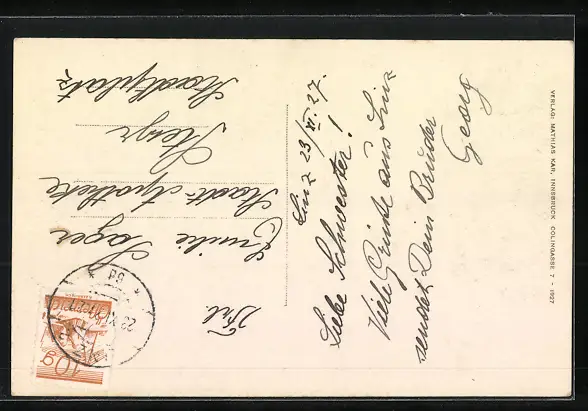 Linz 23/XI. 27.
Liebe Schwester!
Viele Grüße aus Linz
sendet Dein Bruder
Georg
Frl.
Emilie
Sager
Stadt-Apotheke
Steyr
Stadtplatz
10g
VERLAG: MATHIAS KAR, INNSBRUCK COLINGASSE 7 - 1927